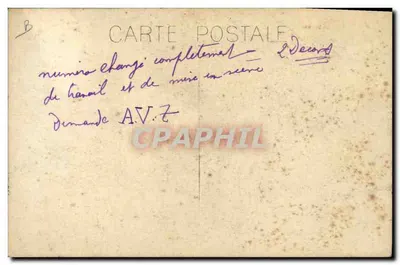 B
CARTE POSTALE
numéro changé complètement — 2 Decors
de travail et de mise en scène
Demande A.V.Z
CPARAMA